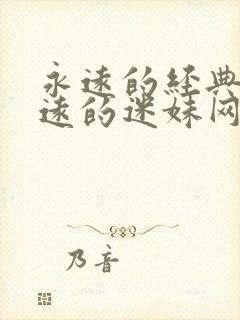 永远的经典
远的迷妹网
乃音